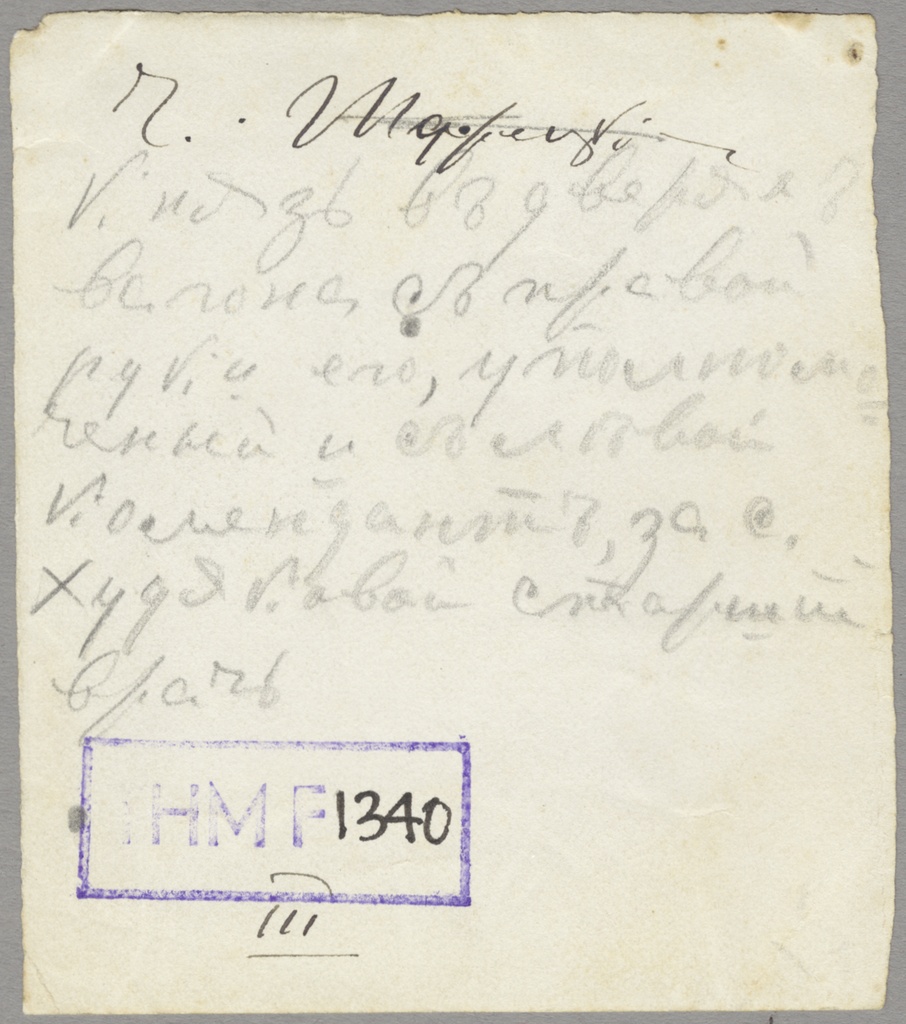 Г.
Князь въ дверяхъ
вагона, съ правой
руки его, уполномо
ченный и съ лѣвой
комендантъ, за с.
Худяковой старшій
врачъ
THM F 1340
III